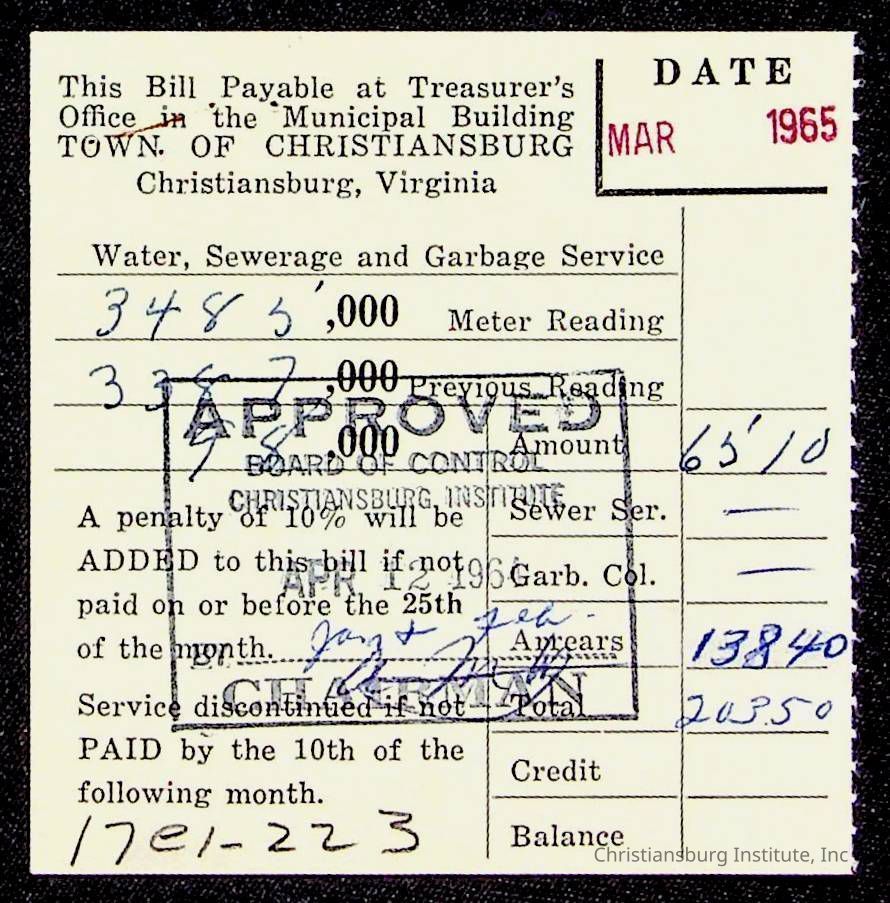 This Bill Payable at Treasurer's
Office in the Municipal Building
TOWN OF CHRISTIANSBURG
Christiansburg, Virginia
DATE
MAR 1965
Water, Sewerage and Garbage Service
3485,000 Meter Reading
3387,000 Previous Reading
98,000 Amount 6510
APPROVED
BOARD OF CONTROL
CHRISTIANSBURG INSTITUTE
APR 12 196
BY
CHAIRMAN
A penalty of 10% will be
ADDED to this bill if not
paid on or before the 25th
of the month.
Sewer Ser. —
Garb. Col. —
Jan & Feb.
Arrears 13840
Total 20350
Service discontinued if not
PAID by the 10th of the
following month.
Credit
Balance
17e1-223
Christiansburg Institute, Inc